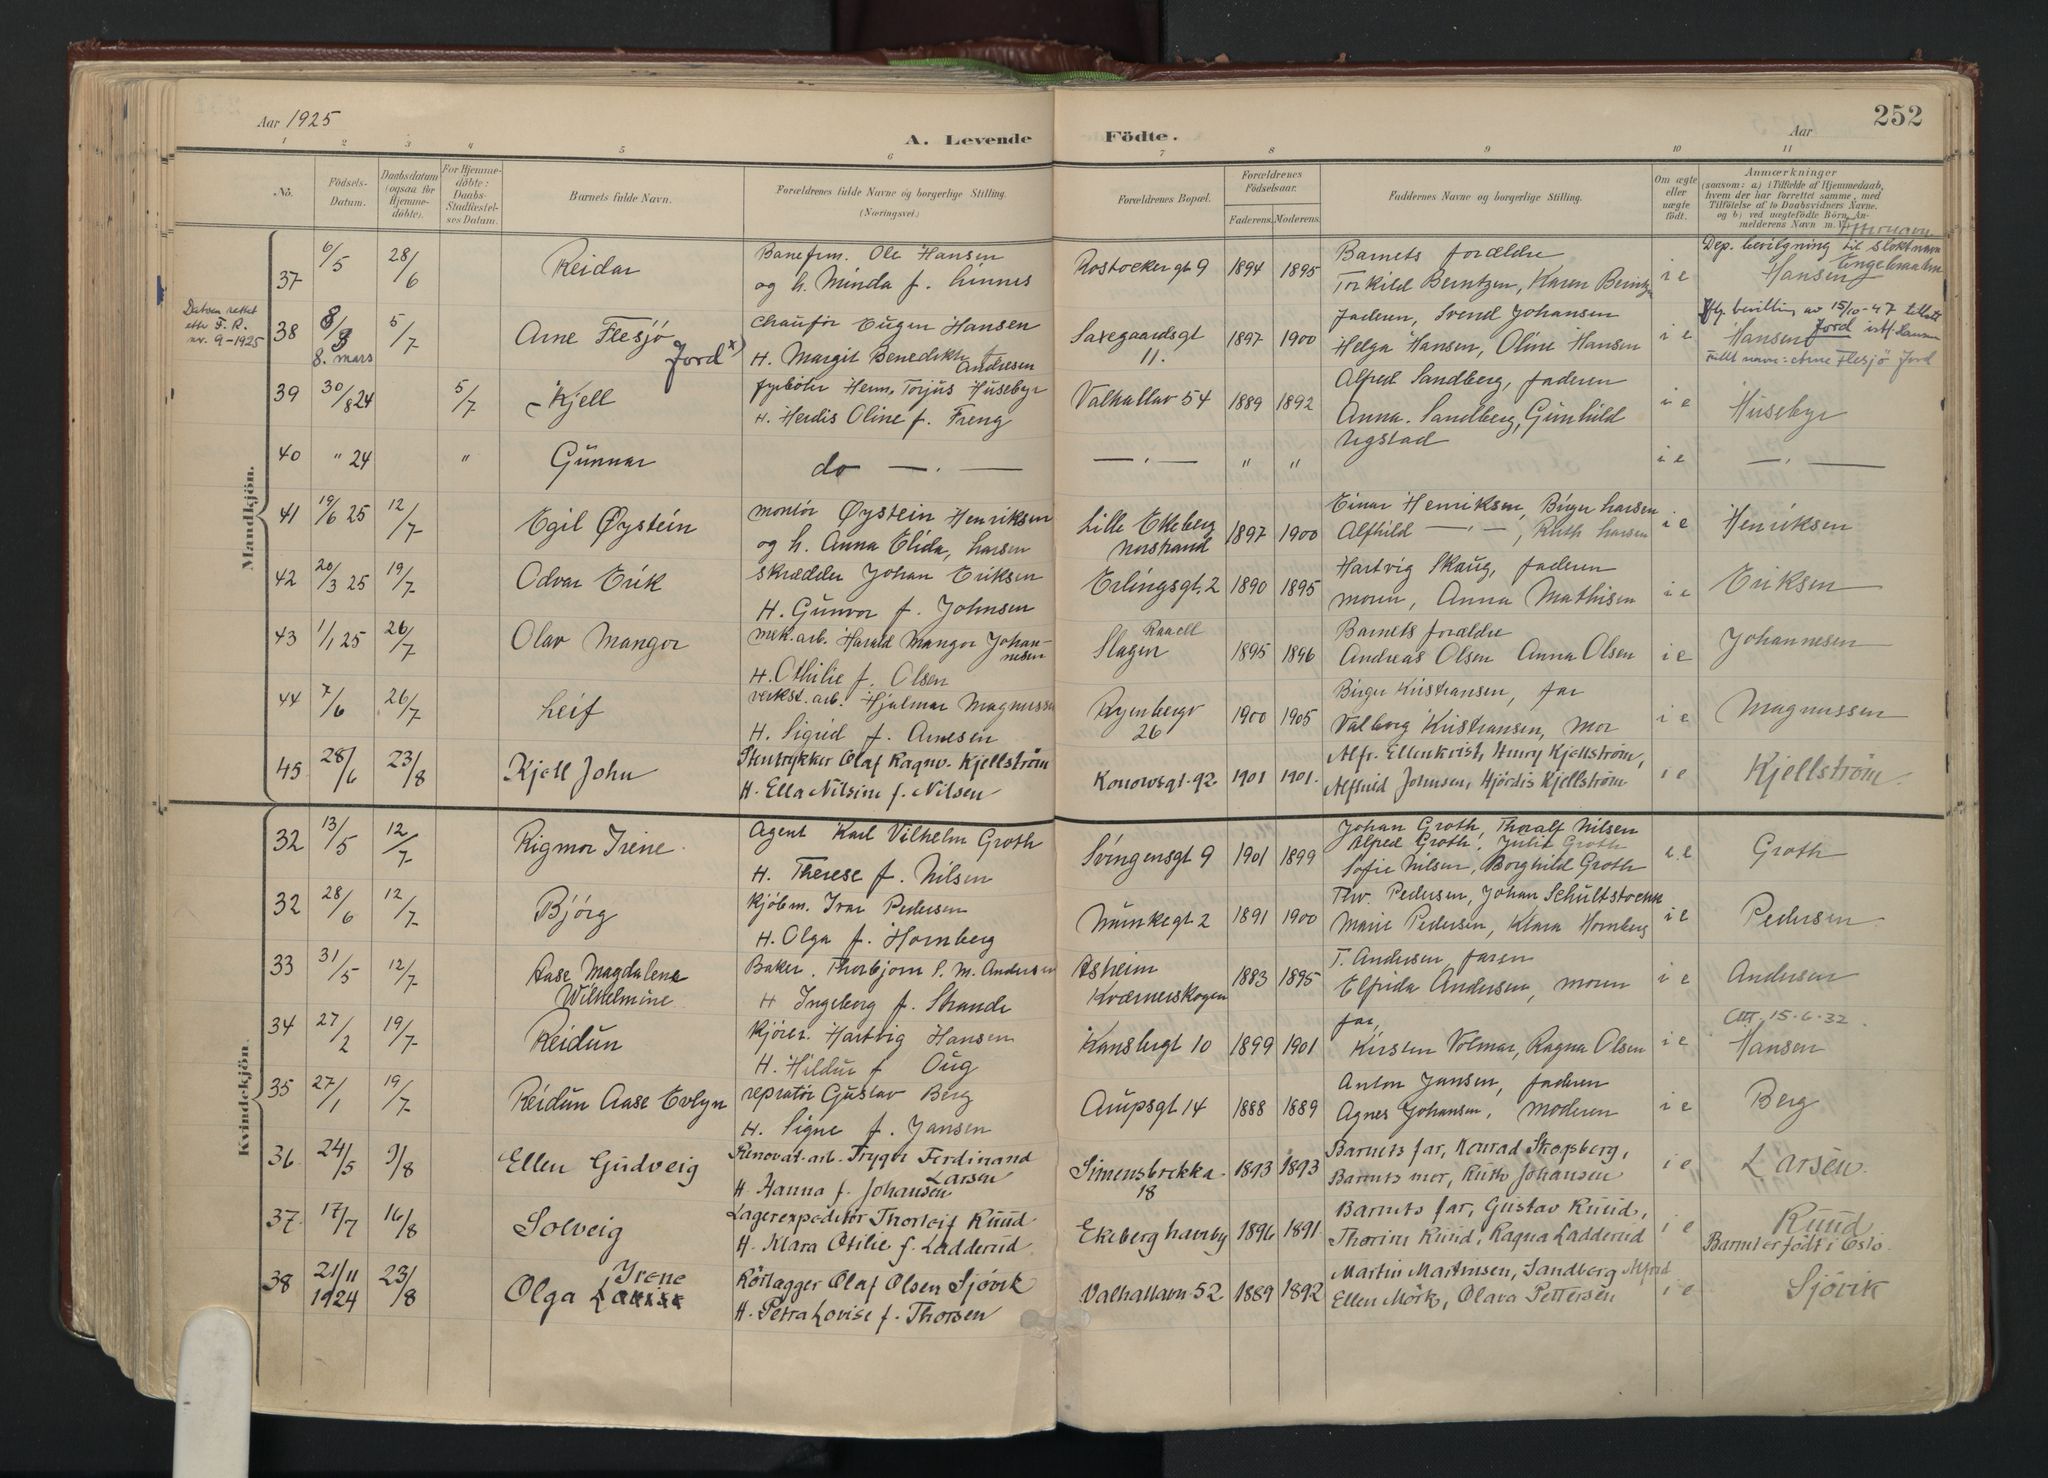 Aar 1925
A. Levende Födte.
Aar
252
1 2 3 4 5 6 7 8 9 10 11
No.
Födsels-Datum.
Daabsdatum (ogsaa for Hjemmedöbte).
For Hjemmedöbte: Daabs-Stadfæstelses Datum.
Barnets fulde Navn.
Forældrenes fulde Navne og borgerlige Stilling.
(Næringsvei.)
Forældrenes Bopæl.
Forældrenes Födselsaar.
Faderens. Moderens.
Faddernes Navne og borgerlige Stilling.
Om ægte eller uægte födt.
Anmærkninger
(saasom: a) i Tilfælde af Hjemmedaab, hvem der har forrettet samme, med Tilföielse af to Daabsvidners Navne. og b) ved uægtefödte Börn, Anmelderens Navn m. V.
Mandkjön.
37 6/5 28/6 Reidar
Banefm. Ole Hansen
og h. Minda f. Linnes
Rostockergt 9 1894 1895
Barnets forældre
Torkild Berntzen, Karen Berntzen
i e
Dep. bevilgning til slektnavn
Hansen
Datoen rettet
etter F. R.
nr. 9-1925
38 8/3 5/7 Arne Flesjö
8. mars
Jord x)
Chauför Eugen Hansen
H. Margit Benedikte Andresen
Saxegaardsgt 11. 1897 1900
Faderen, Svend Johansen
Helga Hansen, Oline Hansen
i e
Iflg. bevilling av 15/10-47 tillatt
Hansen Jord istf. Hansen
Fullt navn: Arne Flesjö Jord
39 30/8 24 5/7 Kjell
fyrböter Herm. Torjus Huseby
H. Herdis Oline f. Freng
Valhallav 54 1889 1892
Alfred Sandberg, faderen
Anna Sandberg, Gunhild
Ugstad
i e
Huseby
40 " 24 " Gunnar
do — " — — " — " " i e — " —
41 19/6 25 12/7 Egil Øystein
montör Øystein Henriksen
og h. Anna Elida, Larsen
Lille Ekeberg
Norstrand 1897 1900
Einar Henriksen, Birger Larsen
Alfhild — " —, Ruth Larsen
i e
Henriksen
42 20/3 25 19/7 Odvar Erik
skrædder Johan Eriksen
H. Gunvor f. Johnsen
Erlingsgt. 2 1890 1895
Hartvig Skaug, faderen
moren, Anna Mathisen
i e
Eriksen
43 1/1 25 26/7 Olav Mangor
mek. arb. Harald Mangor Johannesen
H. Othilie f. Olsen
Slagen 1895 1896
Barnets forældre
Andreas Olsen Anna Olsen
i e
Johannesen
44 7/6 26/7 Leif
verkst. arb. Hjalmar Magnussen
H. Sigrid f. Arnesen
Ryenbergv 26 1900 1905
Birger Kristiansen, far
Valborg Kristiansen, mor
i e
Magnussen
45 28/6 23/8 Kjell John
Stentrykker Olaf Ragnv. Kjellström
H. Ella Nilsine f. Nilsen
Konowsgt. 92 1901 1901.
Alfr. Ellenkvist, Henry Kjellström,
Alfhild Johnsen, Hjördis Kjellström
i e
Kjellström.
Kvindekjön.
32 13/5 12/7 Rigmor Irene
Agent Karl Vilhelm Groth
H. Therese f. Nilsen
Svingensgt 9 1901 1899
Johan Groth, Thoralf Nilsen
Alfred Groth, Julie Groth
Sofie Nilsen, Borghild Groth
i e
Groth
32 28/6 12/7 Björg
Kjöbm. Ivar Pedersen
H. Olga f. Hornberg
Munkegt 2 1891 1900
Thv. Pedersen, Johan Schultstockk
Marie Pedersen, Klara Hornberg
i e
Pedersen
33 31/5 12/7 Aase Magdalene
Wilhelmine
Baker. Thorbjorn S. M. Andersen
H Ingeborg f. Strande
Asheim
Kværnerskogen 1883 1895
T. Andersen, faren
Elfrida Andersen, moren
i e
Andersen
34 27/2 19/7 Reidun
Kjörer. Hartvig Hansen
H. Hildur f Oug
Kanslergt 10 1899 1901
far,
Kirsten Volmar, Ragna Olsen
i e
Att. 15.6.32.
Hansen
35 27/1 19/7 Reidun Aase Evlyn
repratör Gustav Berg
H. Signe f. Jansen
Arupsgt 14 1888 1889
Anton Jansen, faderen
Agnes Johansen, moderen
i e
Berg
36 24/5 9/8 Ellen Gudveig
Renovat. arb. Trygve Ferdinand Larsen
H. Hanna f. Johansen
Simensbrekka 18 1893 1893
Barnets far, Konrad Skogsberg,
Barnets mor, Ruth Johansen
i e
Larsen.
37. 17/7 16/8 Solveig
Lagerexpeditör Thorleif Ruud
H. Klara Otilie f. Ladderud
Ekeberg havnby 1896 1891
Barnets far, Gustav Ruud,
Thorine Ruud, Ragna Ladderud
i e
Ruud
Barnet er födt i Oslo.
38 21/11 1924 23/8 Olga Irene
Rörlægger Olaf Olsen Sjövik
H. Petra Lovise f. Thorsen
Valhallavn 52 1889 1892
Martin Martinsen, Sandberg Alfred
Ellen Mörk, Olava Pettersen
i e
Sjövik